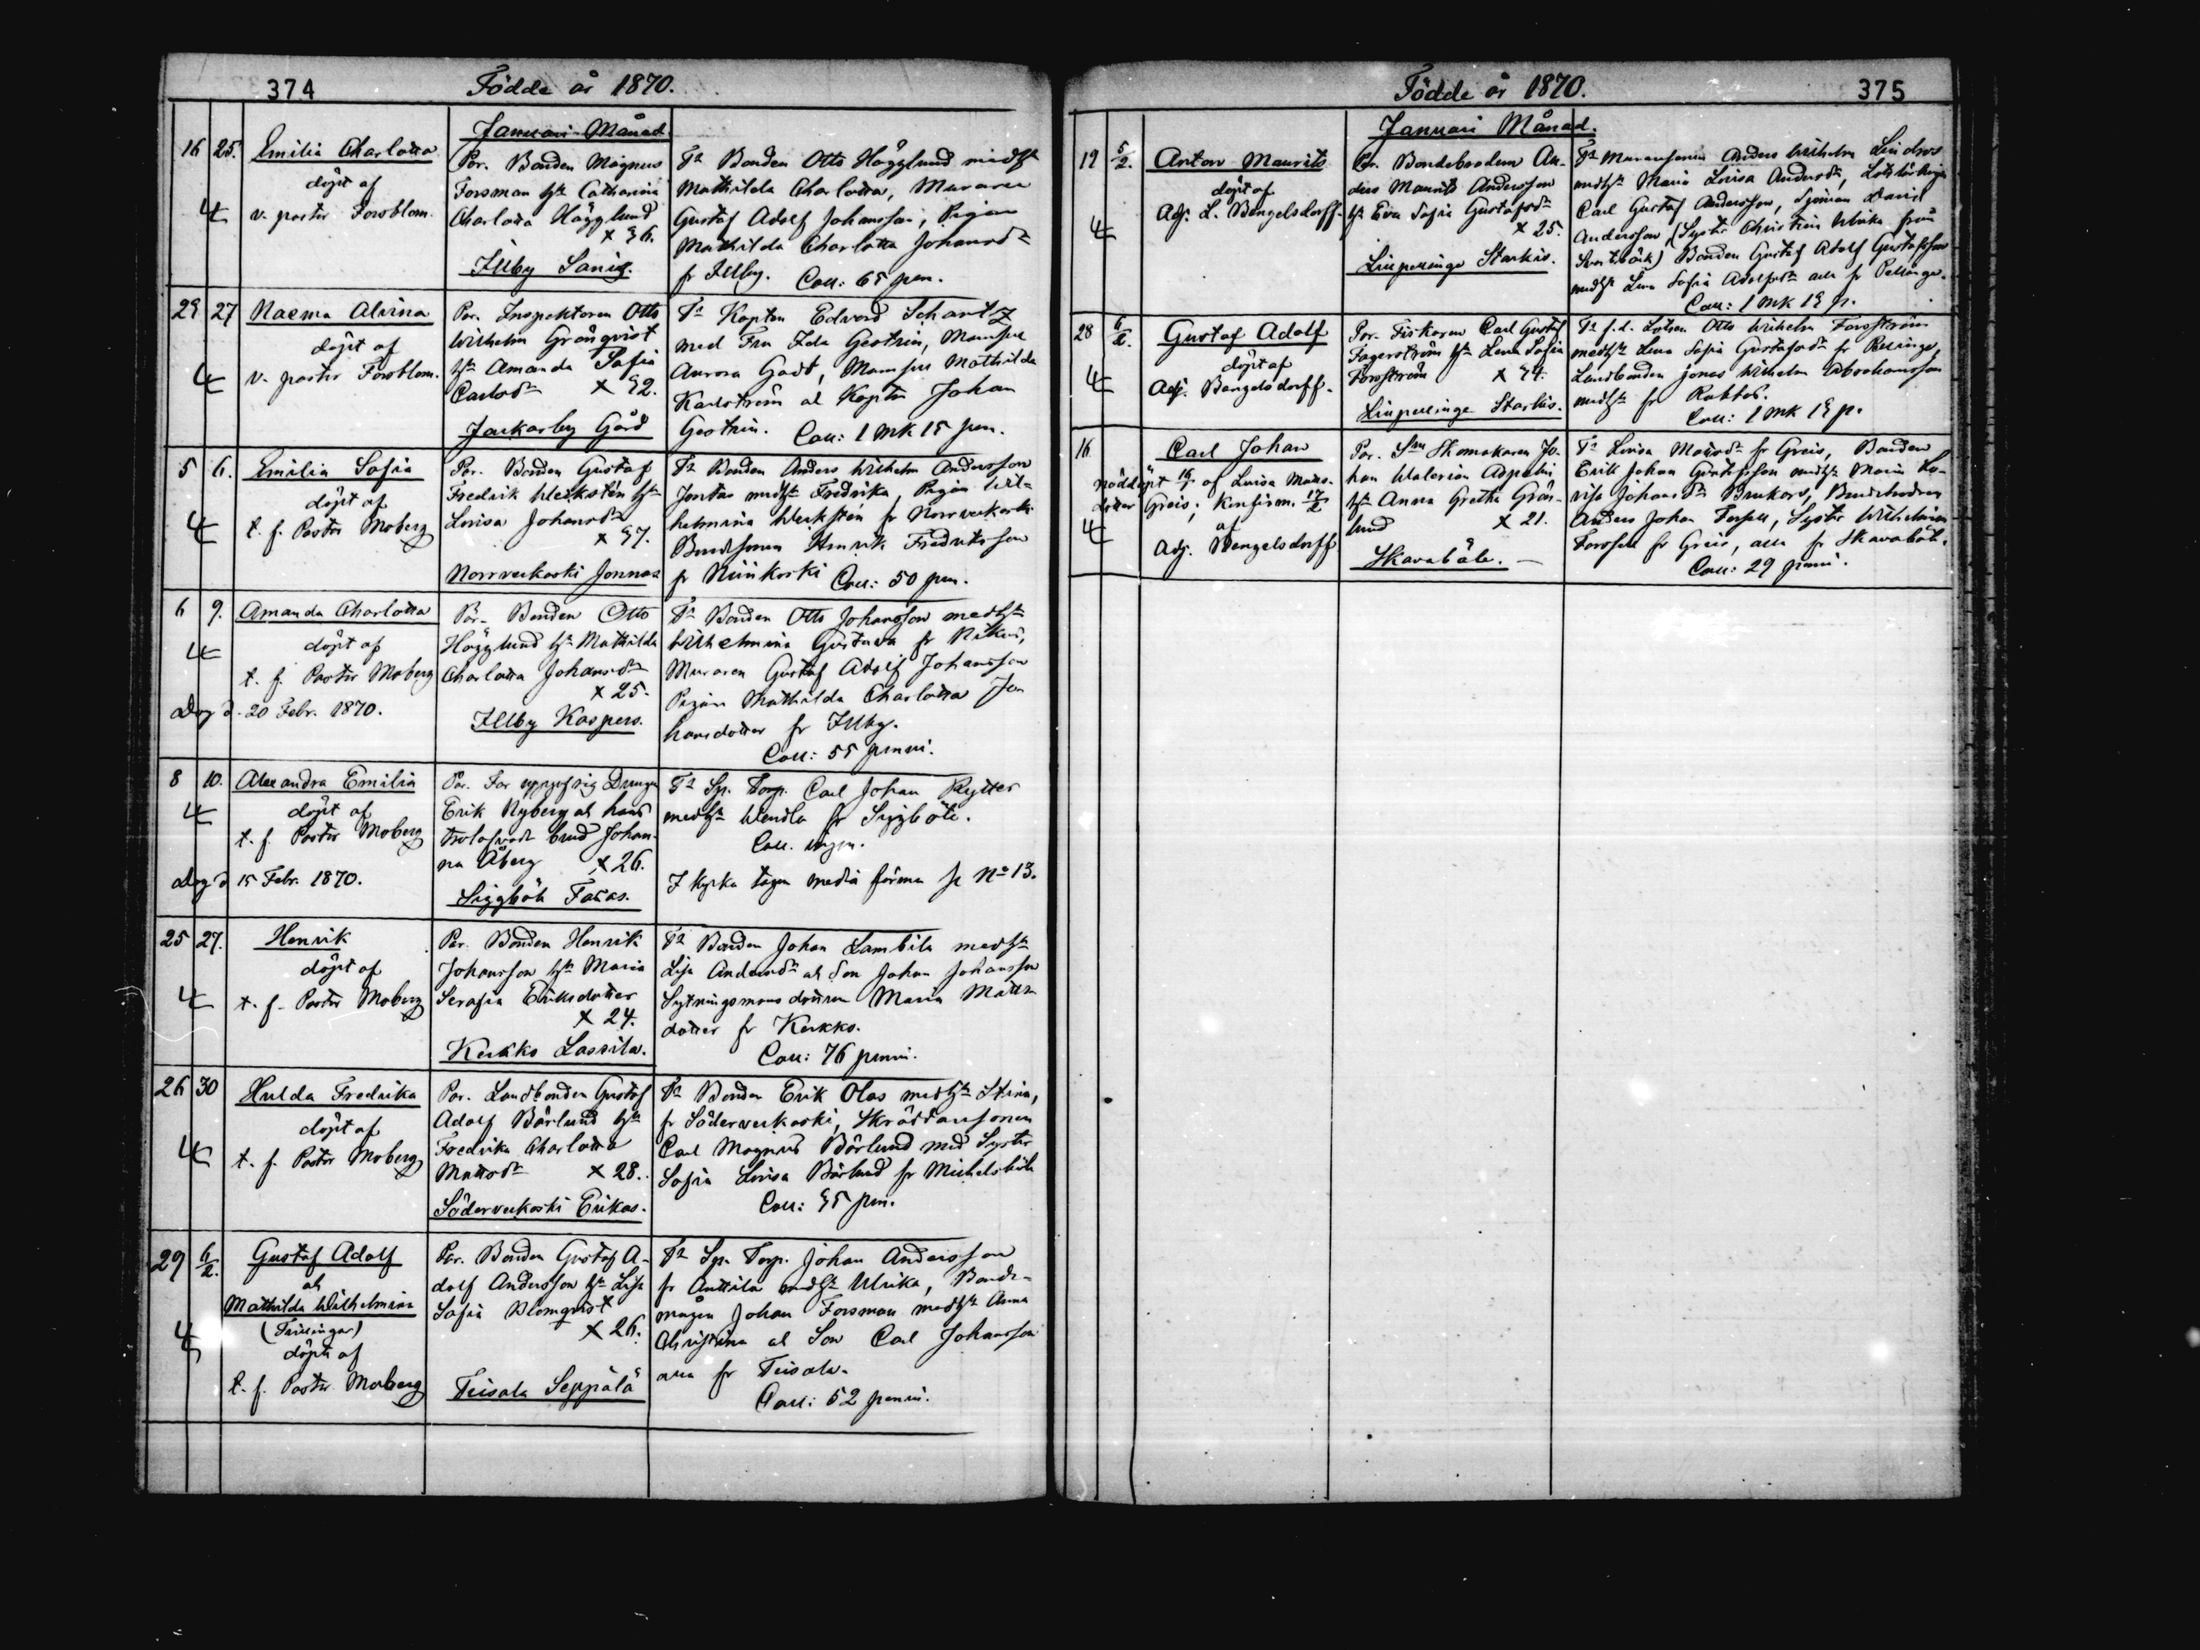 374
Födde år 1870.
Januari Månad.
16 25. Emilia Charlotta
döpt af
v. pastor Forsblom.
Par. Bonden Magnus
Forsman hst Catharina
Charlotta Hägglund
x 36.
Illby Sanis.
Fr Bonden Otto Hägglund medhst
Mathilda Charlotta, Muraren
Gustaf Adolf Johansson, Pigan
Mathilda Charlotta Johansdr
fr Illby. Coll: 65 pen.
23 27 Naema Alvina
döpt af
v. pastor Forsblom.
Par. Inspektoren Otto
Wilhelm Grönqvist
hst Amanda Sofia
Carlsdr x 32.
Jackarby Gård
Fr Kapten Edvard Schantz
med Fru Ida Gestrin, Mamsell
Aurora Gadt, Mamsell Mathilda
Karlström o Kapten Johan
Gestrin. Coll: 1 mk 15 pen.
5 6. Emilia Sofia
döpt af
t. f. Pastor Moberg
Par. Bonden Gustaf
Fredrik Weckstén hst
Lovisa Johansdr
x 37.
Norrveckoski Jonnas
Fr Bonden Anders Wilhelm Andersson
Jontas medhst Fredrika, Pigan Wil-
helmina Weckstén fr Norrveckoski
Bondsonen Henrik Fredriksson
fr Niinikoski Coll: 50 pen.
6 9. Amanda Charlotta
döpt af
t. f. Pastor Moberg
Dog d. 20 Febr. 1870.
Par. Bonden Otto
Hägglund hst Mathilda
Charlotta Johansdr
x 25.
Illby Kaspers.
Fr Bonden Otto Johansson medhst
Wilhelmina Gustava fr Nikus,
Muraren Gustaf Adolf Johansson
Pigan Mathilda Charlotta Jo-
hansdotter fr Illby.
Coll: 55 penni.
8 10. Alexandra Emilia
döpt af
t. f. Pastor Moberg
Dog d 15 Febr. 1870.
Par. Drengen
Erik Nyberg o hans
trolofvade brud Johan-
na Åberg x 26.
Siggböle Fasas.
Fr Sp. Torp. Carl Johan Rytter
medhst Wendla fr Siggböle.
Coll. ingen.
I kyrka tagen No 13.
25 27. Henrik
döpt af
t. f. Pastor Moberg
Par. Bonden Henrik
Johansson hst Maria
Serafia Eriksdotter
x 24.
Kerkko Lassila.
Fr Bonden Johan Lambila medhst
Lisa Andersdr o Son Johan Johansson
Sytningsmans dottren Maria Matts-
dotter fr Kerkko.
Coll: 76 penni.
26 30 Hulda Fredrika
döpt af
t. f. Pastor Moberg
Par. Landbonden Gustaf
Adolf Bärlund hst
Fredrika Charlotta
Mattsdr x 28.
Söderveckoski Erikas.
Fr Bonden Erik Olas medhst Stina,
fr Söderveckoski, Skräddarsonen
Carl Magnus Bärlund med Syster
Sofia Lovisa Bärlund fr Michelsböle
Coll: 35 pen.
29 6/2. Gustaf Adolf
och
Mathilda Wilhelmina
(Tvillingar)
döpte af
t. f. Pastor Moberg
Par. Bonden Gustaf A-
dolf Andersson hst Lisa
Sofia Blomqvist
x 26.
Teisala Seppälä
Fr Sp. Torp. Johan Andersson
fr Anttila medhst Ulrika, Bonde-
mågen Johan Forsman medhst Anna
Christina o Son Carl Johansson
alla fr Teisala.
Coll: 52 penni.
Födde år 1870.
375
Januari Månad.
12 5/2. Anton Maurits
döpt af
Adj. L. Bengelsdorff.
Par. Bondebrodren An-
ders Maurits Andersson
hst Eva Sofia Gustafsdr
x 25.
Lillpellinge Starkis.
Fr Muraresonen Anders Wilhelm Lindros
medhst Maria Lovisa Andersdr, Lotslärlingen
Carl Gustaf Andersson, Sjöman David
Andersson, (Syster Christina Ulrika från
Svartbäck) Bonden Gustaf Adolf Gustafsson
medhst Lena Sofia Adolfsdr alla fr Pellinge.
Coll: 1 mk 13 p.
28 6/2. Gustaf Adolf
döpt af
Adj. Bengelsdorff.
Par. Fiskaren Carl Gustaf
Fagerström hst Lena Sofia
Forsström x 34.
Lillpellinge Starkis.
Fr f.d. Lotsen Otto Wilhelm Forsström
medhst Lena Sofia Gustafsdr fr Pellinge,
Landbonden Jonas Wilhelm Abrahamsson
medhst fr Rabbas.
Coll: 1 mk 13 p.
16 Carl Johan
nöddöpt 16/1 af Lovisa Matts-
dotter Greis; Konfirm. 17/2
af
Adj. Bengelsdorff
Par. Skomakaren Jo-
han Walerian Aspelin
hst Anna Gretha Grön-
lund x 21.
Skavaböle.
Fr Lovisa Mattsdr fr Greis, Bonden
Erik Johan Gustafsson medhst Maria Lo-
visa Johansdr Brukars, Bondebrodren
Anders Johan Forsell, Syster Wilhelmina
Forsell fr Greis, alla fr Skavaböle.
Coll: 29 penni.